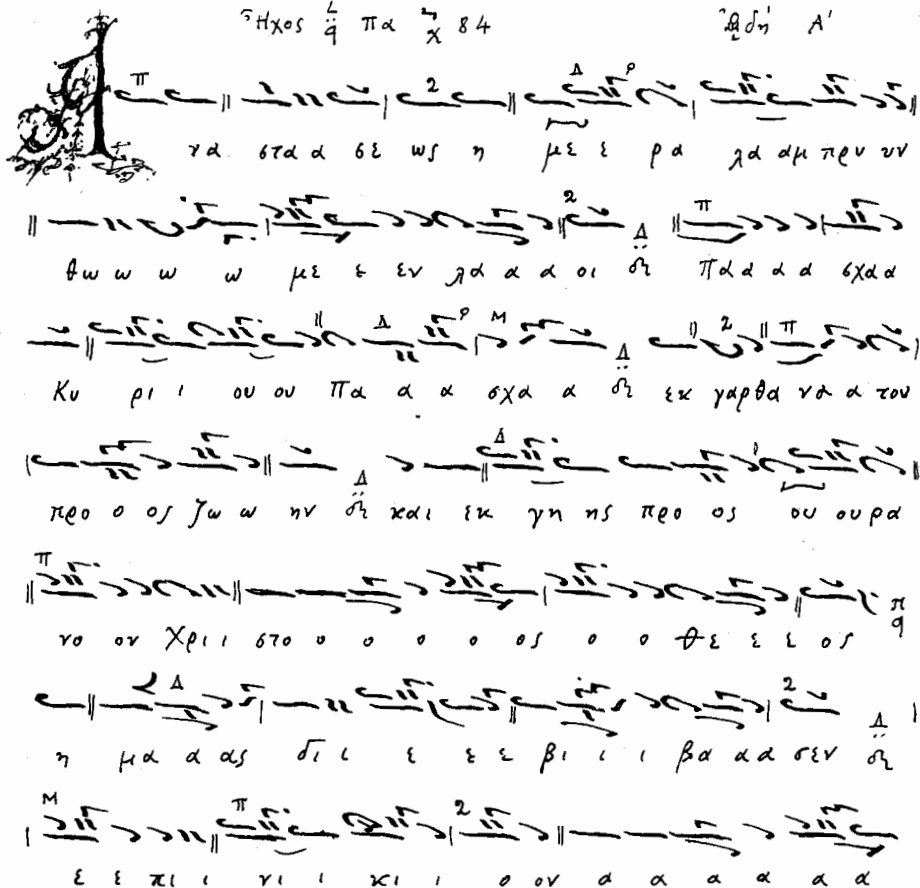 Ἦχος πα 84 ᾨδή Α'
Α να στα α σε ως η με ε ρα λα αμ πρυ υν
θω ω ω ω με ε εν λα α α οι δι Πα α α α σχα α
Κυ ρι ι ου ου Πα α α σχα α δι εκ γαρ θα να α του
προ ο ος ζω ω ην δι και εκ γη ης προ ος ου ου ρα
νο ον Χρι ι στο ο ο ο ο ος ο ο θε ε ε ος
η μα α ας δι ι ε ε ε βι ι ι βα α α σεν δι
ε ε πι ι νι ι κι ι ο ον α α α α α α